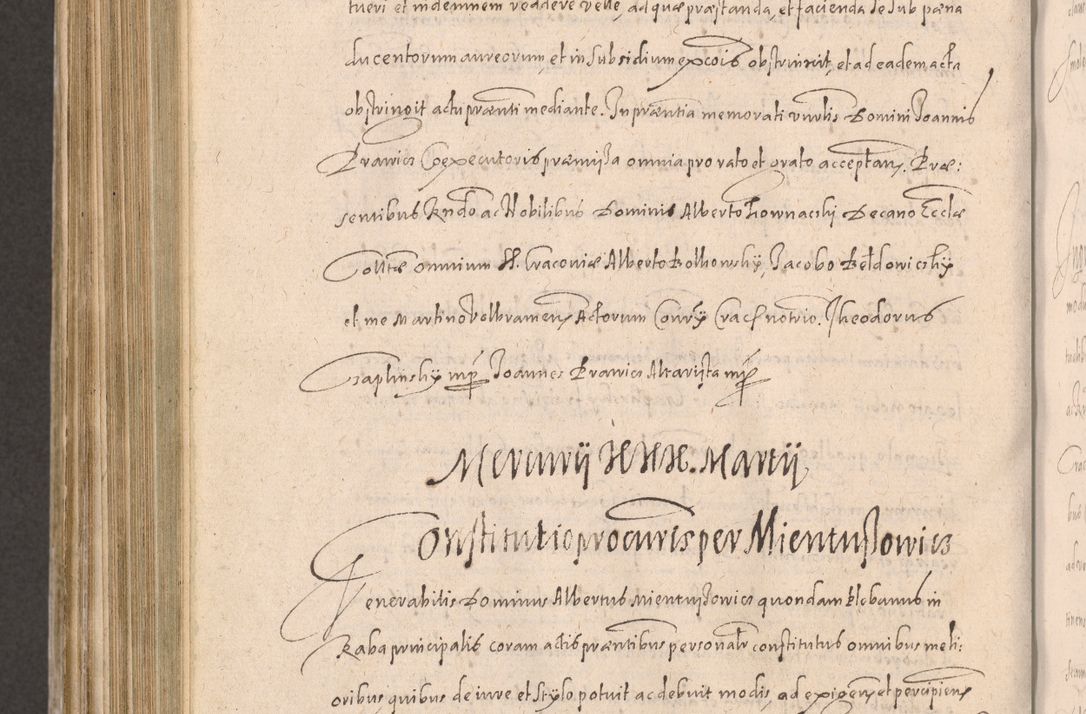 tueri et indemnem reddere velle, ad quæ præstanda, et facienda se sub pæna
ducentorum aureorum, et in subsidium excois obstrinxit, et ad eadem acta
obstringit actu præsenti mediante. In præntia memorati vnrlis Domini Joannis
Prawicz Coexecutoris præmissa omnia pro rato et grato acceptans. Præ:
sentibus Rndo ac Nobilibus Dominis Alberto Lownacski Decano Ecclæ
Colltæ omnium SS. Cracoviæ Alberto Bolkowsky, Jacobo Bełdowicsky
et me Martino Volbramens Actorum Conry Crac notrio. Theodorus
Czaplinsky mp Joannes Prawicz Altarista mp
Mercurij XXX. Martij
Constitutio procuris per Mientussowicz
Venerabilis Dominus Albertus Mientussowicz quondam Plebanus in
Raba principalis coram actis præntibus personalr constitutus omnibus meli:
oribus quibus de iure et stylo potuit ac debuit modis, ad exigens et percipiens